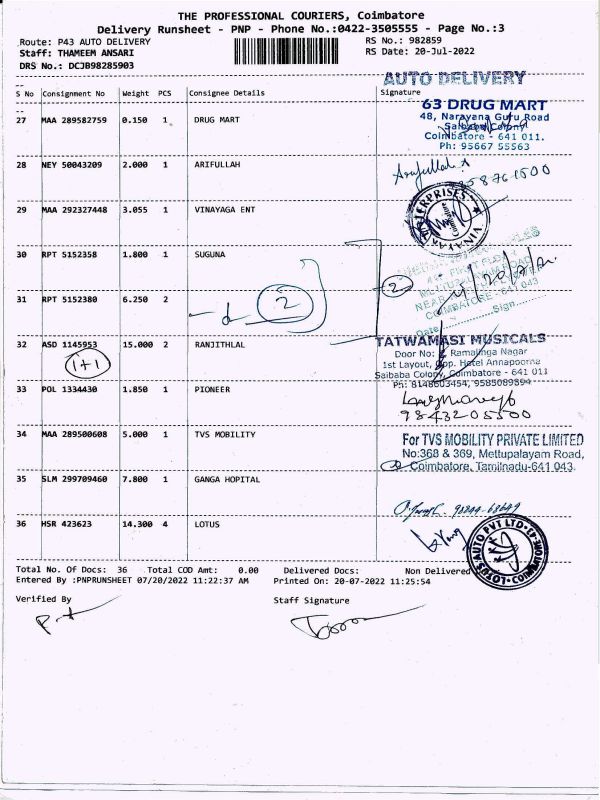 THE PROFESSIONAL COURIERS, Coimbatore
Delivery Runsheet - PNP - Phone No.:0422-3505555 - Page No.:3
Route: P43 AUTO DELIVERY
RS No.: 982859
Staff: THAMEEM ANSARI
RS Date: 20-Jul-2022
DRS No.: DCJB98285903
AUTO DELIVERY
S No Consignment No Weight PCS Consignee Details Signature
27 MAA 289582759 0.150 1 DRUG MART
63 DRUG MART
48, Narayana Guru Road
Saibaba Colony
Coimbatore - 641 011.
Ph: 95667 55563
28 NEY 50043209 2.000 1 ARIFULLAH
Arifullah A
29 MAA 292327448 3.055 1 VINAYAGA ENT
30 RPT 5152358 1.800 1 SUGUNA
31 RPT 5152380 6.250 2
2
2
COIMBATORE - 641 043
Date Sign
32 ASD 1145953 15.000 2 RANJITHLAL
1+1
TATWAMASI MUSICALS
Door No: 2, Ramalinga Nagar
1st Layout, Opp. Hotel Annapoorna
Saibaba Colony, Coimbatore - 641 011
Ph: 8148603454, 9585089894
33 POL 1334430 1.850 1 PIONEER
9843205500
34 MAA 289500608 5.000 1 TVS MOBILITY
For TVS MOBILITY PRIVATE LIMITED
No:368 & 369, Mettupalayam Road,
Coimbatore, Tamilnadu-641 043.
35 SLM 299709460 7.800 1 GANGA HOPITAL
36 HSR 423623 14.300 4 LOTUS
LOTUS AUTO PVT LTD
Total No. Of Docs: 36 Total COD Amt: 0.00 Delivered Docs: Non Delivered
Entered By :PNPRUNSHEET 07/20/2022 11:22:37 AM Printed On: 20-07-2022 11:25:54
Verified By Staff Signature